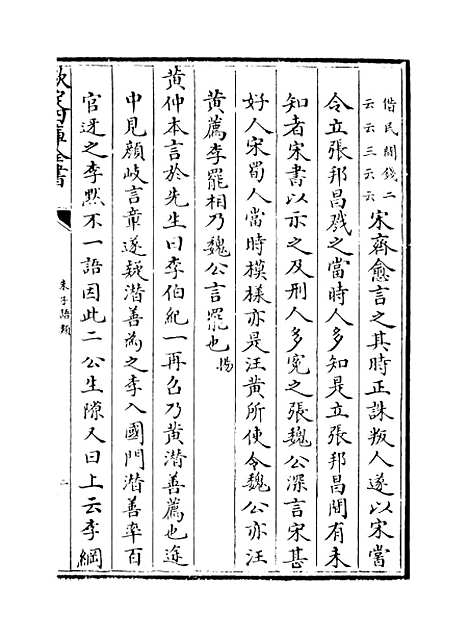 借民間錢二
云云三云六
宋齊愈言之其時正誅叛人遂以宋當
令立張邦昌戮之當時人多知是立張邦昌間有未
知者宋書以示之及刑人多寃之張魏公深言宋甚
好人宋蜀人當時模樣亦是汪黄所使令魏公亦汪
黄薦李罷相乃魏公言罷也
黄仲本言於先生曰李伯紀一再召乃黄潛善薦也途
中見顔岐言章遂疑潛善為之李入國門潛善率百
官迓之李黙不一語因此二公生隙又曰上云李綱
欽定四庫全書
朱子語類
二